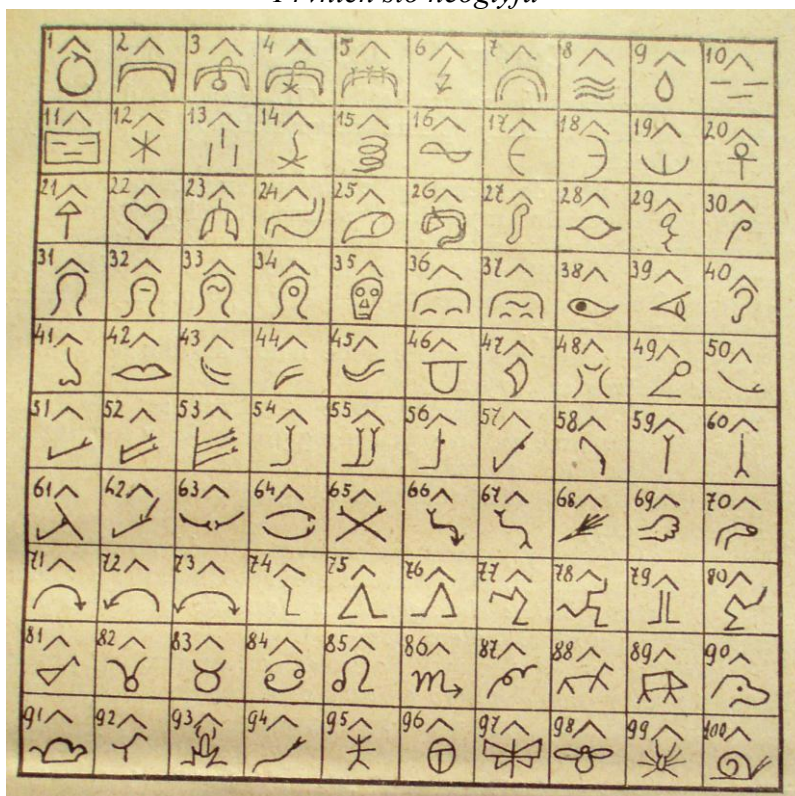 Prvních sto neoglyfů
1 2 3 4 5 6 7 8 9 10
11 12 13 14 15 16 17 18 19 20
21 22 23 24 25 26 27 28 29 30
31 32 33 34 35 36 37 38 39 40
41 42 43 44 45 46 47 48 49 50
51 52 53 54 55 56 57 58 59 60
61 62 63 64 65 66 67 68 69 70
71 72 73 74 75 76 77 78 79 80
81 82 83 84 85 86 87 88 89 90
91 92 93 94 95 96 97 98 99 100